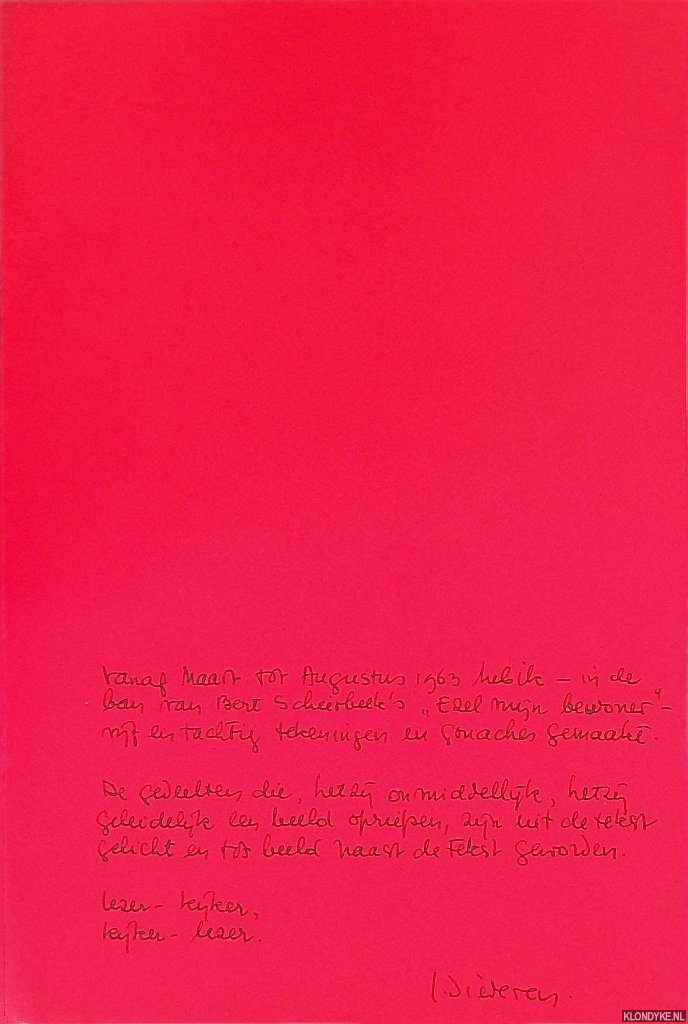 Vanaf Maart tot Augustus 1963 heb ik – in de
ban van Bert Schierbeek's „Ezel mijn bewoner" –
vijf en tachtig tekeningen en gouaches gemaakt.
De gedeelten die, hetzij onmiddellijk, hetzij
geleidelijk een beeld opriepen, zijn uit de tekst
gelicht en tot beeld naast de tekst geworden.
lezer – kijker,
kijker – lezer.
Diederen.
KLONDYKE.NL